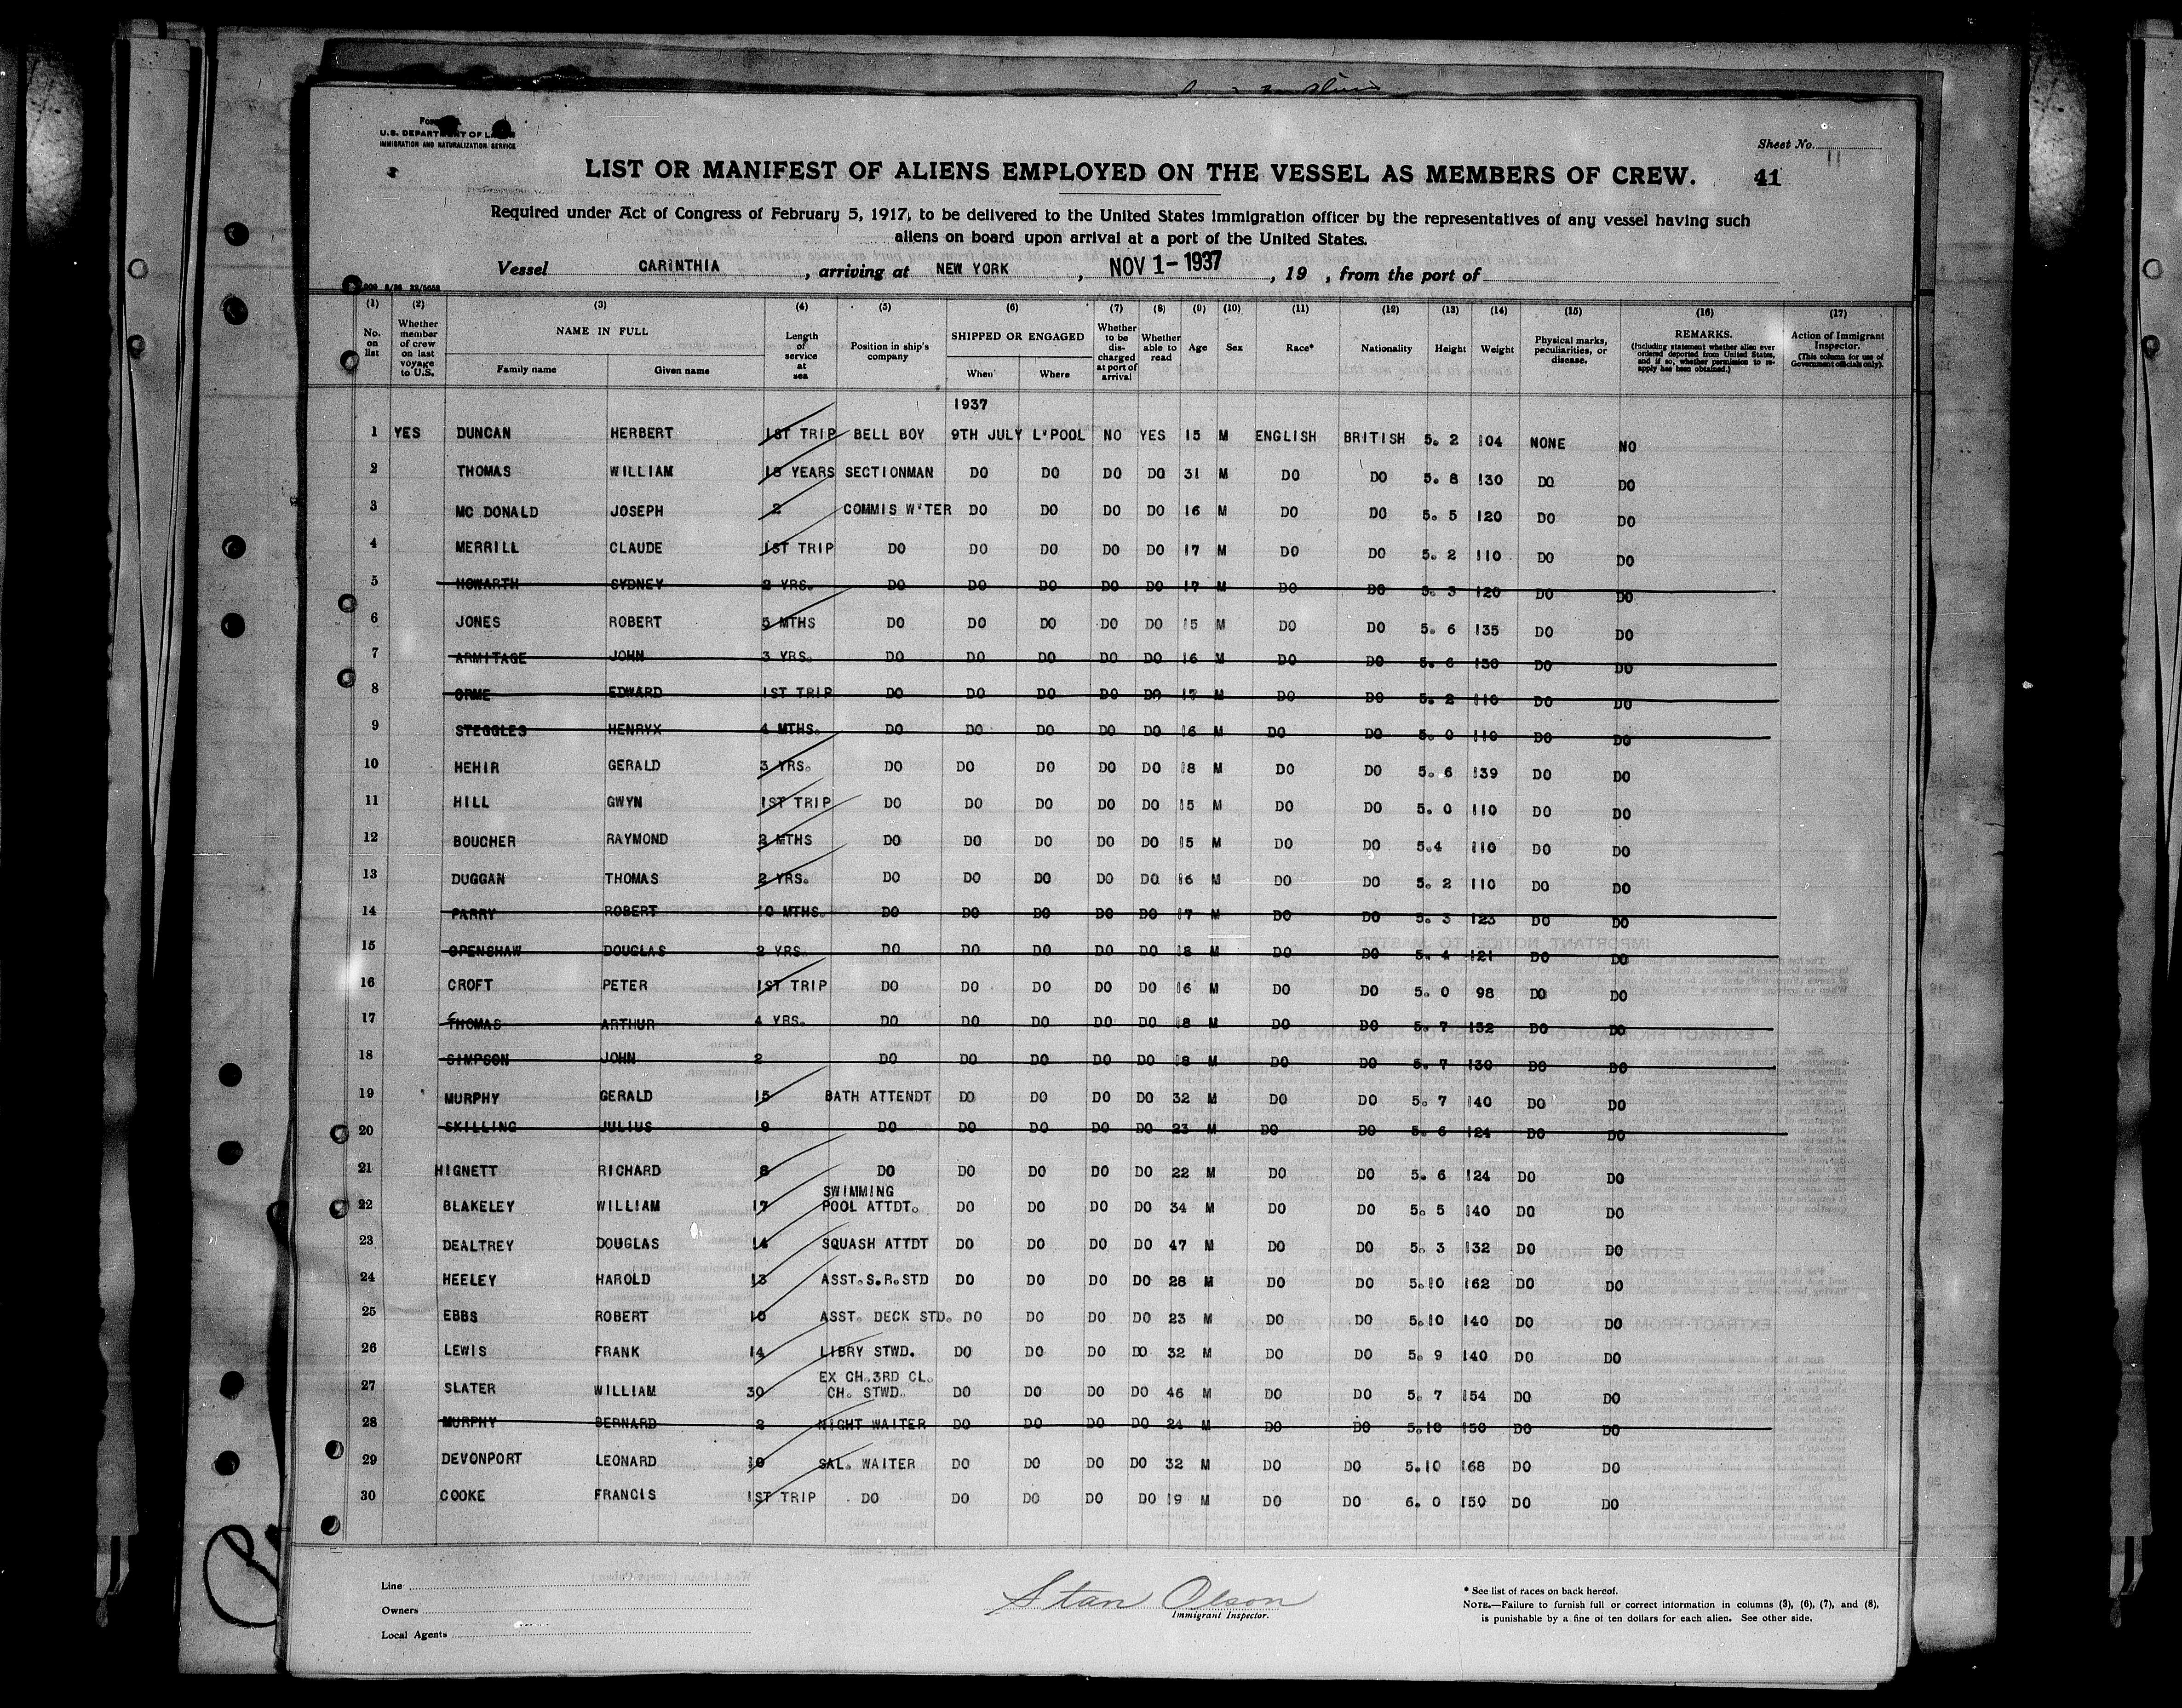 U.S. DEPARTMENT OF LABOR
IMMIGRATION AND NATURALIZATION SERVICE
Sheet No. 11
LIST OR MANIFEST OF ALIENS EMPLOYED ON THE VESSEL AS MEMBERS OF CREW. 41
Required under Act of Congress of February 5, 1917, to be delivered to the United States immigration officer by the representatives of any vessel having such
aliens on board upon arrival at a port of the United States.
Vessel CARINTHIA, arriving at NEW YORK, NOV 1-1937, 19 , from the port of
(1) (2) (3) (4) (5) (6) (7) (8) (9) (10) (11) (12) (13) (14) (15) (16) (17)
No. on list Whether member of crew on last voyage to U.S. NAME IN FULL Family name Given name Length of service at sea Position in ship's company SHIPPED OR ENGAGED When Where Whether to be discharged at port of arrival Whether able to read Age Sex Race* Nationality Height Weight Physical marks, peculiarities, or disease. REMARKS. (Including statement whether alien ever ordered deported from United States, and if so, whether permission to reapply has been obtained.) Action of Immigrant Inspector. (This column for use of Government officials only).
1937
1 YES DUNCAN HERBERT 1ST TRIP BELL BOY 9TH JULY L'POOL NO YES 15 M ENGLISH BRITISH 5. 2 104 NONE NO
2 THOMAS WILLIAM 18 YEARS SECTIONMAN DO DO DO DO 31 M DO DO 5. 8 130 DO DO
3 MC DONALD JOSEPH 2 COMMIS W'TER DO DO DO DO 16 M DO DO 5. 5 120 DO DO
4 MERRILL CLAUDE 1ST TRIP DO DO DO DO DO 17 M DO DO 5. 2 110 DO DO
5 HOWARTH SYDNEY 2 YRS. DO DO DO DO DO 17 M DO DO 5. 3 120 DO DO
6 JONES ROBERT 5 MTHS DO DO DO DO DO 15 M DO DO 5. 6 135 DO DO
7 ARMITAGE JOHN 3 YRS. DO DO DO DO DO 16 M DO DO 5. 6 130 DO DO
8 ORME EDWARD 1ST TRIP DO DO DO DO DO 17 M DO DO 5. 2 110 DO DO
9 STEGGLES HENRYX 4 MTHS. DO DO DO DO DO 16 M DO DO 5. 0 110 DO DO
10 HEHIR GERALD 3 YRS. DO DO DO DO DO 18 M DO DO 5. 6 139 DO DO
11 HILL GWYN 1ST TRIP DO DO DO DO DO 15 M DO DO 5. 0 110 DO DO
12 BOUCHER RAYMOND 2 MTHS DO DO DO DO DO 15 M DO DO 5.4 110 DO DO
13 DUGGAN THOMAS 2 YRS. DO DO DO DO DO 16 M DO DO 5. 2 110 DO DO
14 PARRY ROBERT 10 MTHS. DO DO DO DO DO 17 M DO DO 5. 3 123 DO DO
15 OPENSHAW DOUGLAS 2 YRS. DO DO DO DO DO 18 M DO DO 5. 4 121 DO DO
16 CROFT PETER 1ST TRIP DO DO DO DO DO 16 M DO DO 5. 0 98 DO DO
17 THOMAS ARTHUR 4 YRS. DO DO DO DO DO 18 M DO DO 5. 7 132 DO DO
18 SIMPSON JOHN 2 DO DO DO DO DO 18 M DO DO 5. 7 130 DO DO
19 MURPHY GERALD 15 BATH ATTENDT DO DO DO DO 32 M DO DO 5. 7 140 DO DO
20 SKILLING JULIUS 9 DO DO DO DO DO 23 M DO DO 5. 6 124 DO DO
21 HIGNETT RICHARD 8 DO DO DO DO DO 22 M DO DO 5. 6 124 DO DO
22 BLAKELEY WILLIAM 17 SWIMMING POOL ATTDT. DO DO DO DO 34 M DO DO 5. 5 140 DO DO
23 DEALTREY DOUGLAS 14 SQUASH ATTDT DO DO DO DO 47 M DO DO 5. 3 132 DO DO
24 HEELEY HAROLD 13 ASST.S.R.STD DO DO DO DO 28 M DO DO 5.10 162 DO DO
25 EBBS ROBERT 10 ASST. DECK STD. DO DO DO DO 23 M DO DO 5.10 140 DO DO
26 LEWIS FRANK 14 LIBRY STWD. DO DO DO DO 32 M DO DO 5. 9 140 DO DO
27 SLATER WILLIAM 30 EX CH.3RD CL. CH. STWD. DO DO DO DO 46 M DO DO 5. 7 154 DO DO
28 MURPHY BERNARD 2 NIGHT WAITER DO DO DO DO 24 M DO DO 5.10 150 DO DO
29 DEVONPORT LEONARD 10 SAL. WAITER DO DO DO DO 32 M DO DO 5.10 168 DO DO
30 COOKE FRANCIS 1ST TRIP DO DO DO DO DO 19 M DO DO 6. 0 150 DO DO
Line
Owners
Local Agents
Stan Olson
Immigrant Inspector.
* See list of races on back hereof.
NOTE.—Failure to furnish full or correct information in columns (3), (6), (7), and (8),
is punishable by a fine of ten dollars for each alien. See other side.